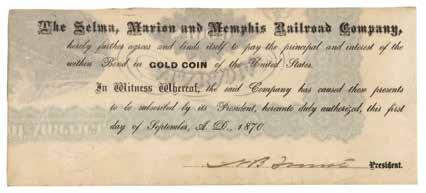 The Selma, Marion and Memphis Railroad Company,
hereby further agrees and binds itself to pay the principal and interest of the
within Bond in GOLD COIN of the United States.
In Witness Whereof, the said Company has caused these presents
to be subscribed by its President, hereunto duly authorized, this first
day of September, A. D., 1870.
President.